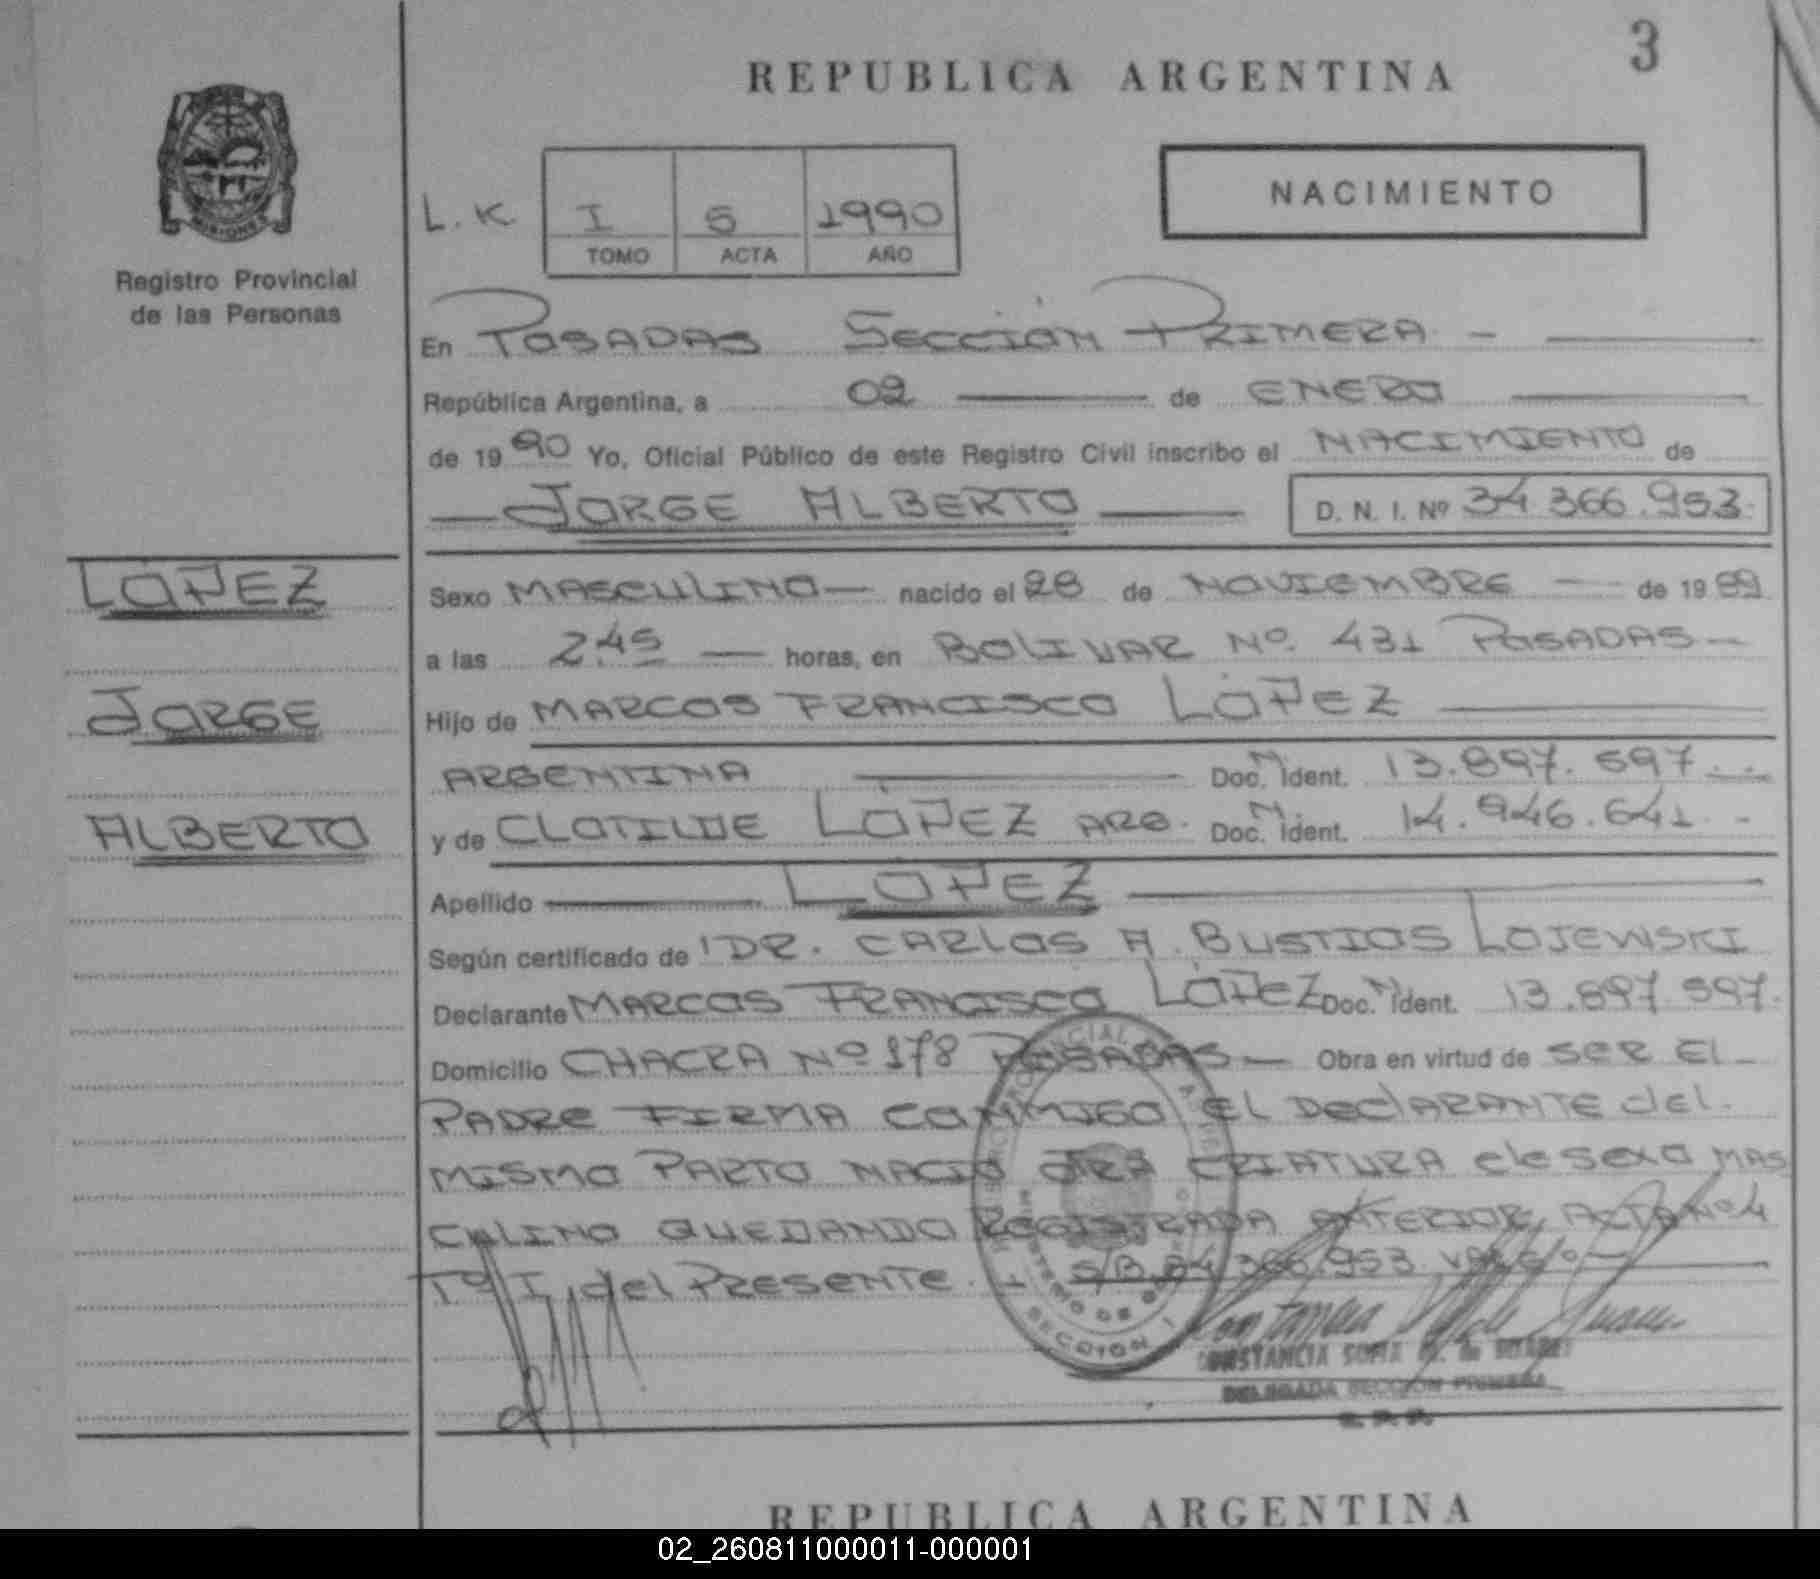 3
REPUBLICA ARGENTINA
MISIONES
Registro Provincial
de las Personas
L. K
I 5 1990
TOMO ACTA AÑO
NACIMIENTO
En POSADAS SECCIÓN PRIMERA -
República Argentina, a 02 de ENERO
de 1990 Yo, Oficial Público de este Registro Civil inscribo el NACIMIENTO de
JORGE ALBERTO D. N. I. Nº 34.366.953.
LÓPEZ
JORGE
ALBERTO
Sexo MASCULINO nacido el 28 de NOVIEMBRE de 1989
a las 2.45 horas, en BOLIVAR Nº 431 POSADAS
Hijo de MARCOS FRANCISCO LÓPEZ
ARGENTINA Doc. N Ident. 13.897.597
y de CLOTILDE LÓPEZ ARG. Doc. N Ident. 14.946.641
Apellido LOPEZ
Según certificado de DR. CARLOS A. BUSTIOS LOJEWSKI
Declarante MARCOS FRANCISCO LÓPEZ Doc. N Ident. 13.897.597.
Domicilio CHACRA Nº 178 POSADAS Obra en virtud de SER EL
PADRE FIRMA CONMIGO EL DECLARANTE del
MISMO PARTO NACIÓ OTRA CRIATURA de sexo MAS
CULINO QUEDANDO REGISTRADA ANTERIOR, ACTA Nº 4
Tº I del PRESENTE. S/B.34.366.953. VALE
SECCION 1
CONSTANCIA SOFIA de SUAREZ
DELEGADA SECCION PRIMERA
R. P. P.
REPUBLICA ARGENTINA
02_260811000011-000001